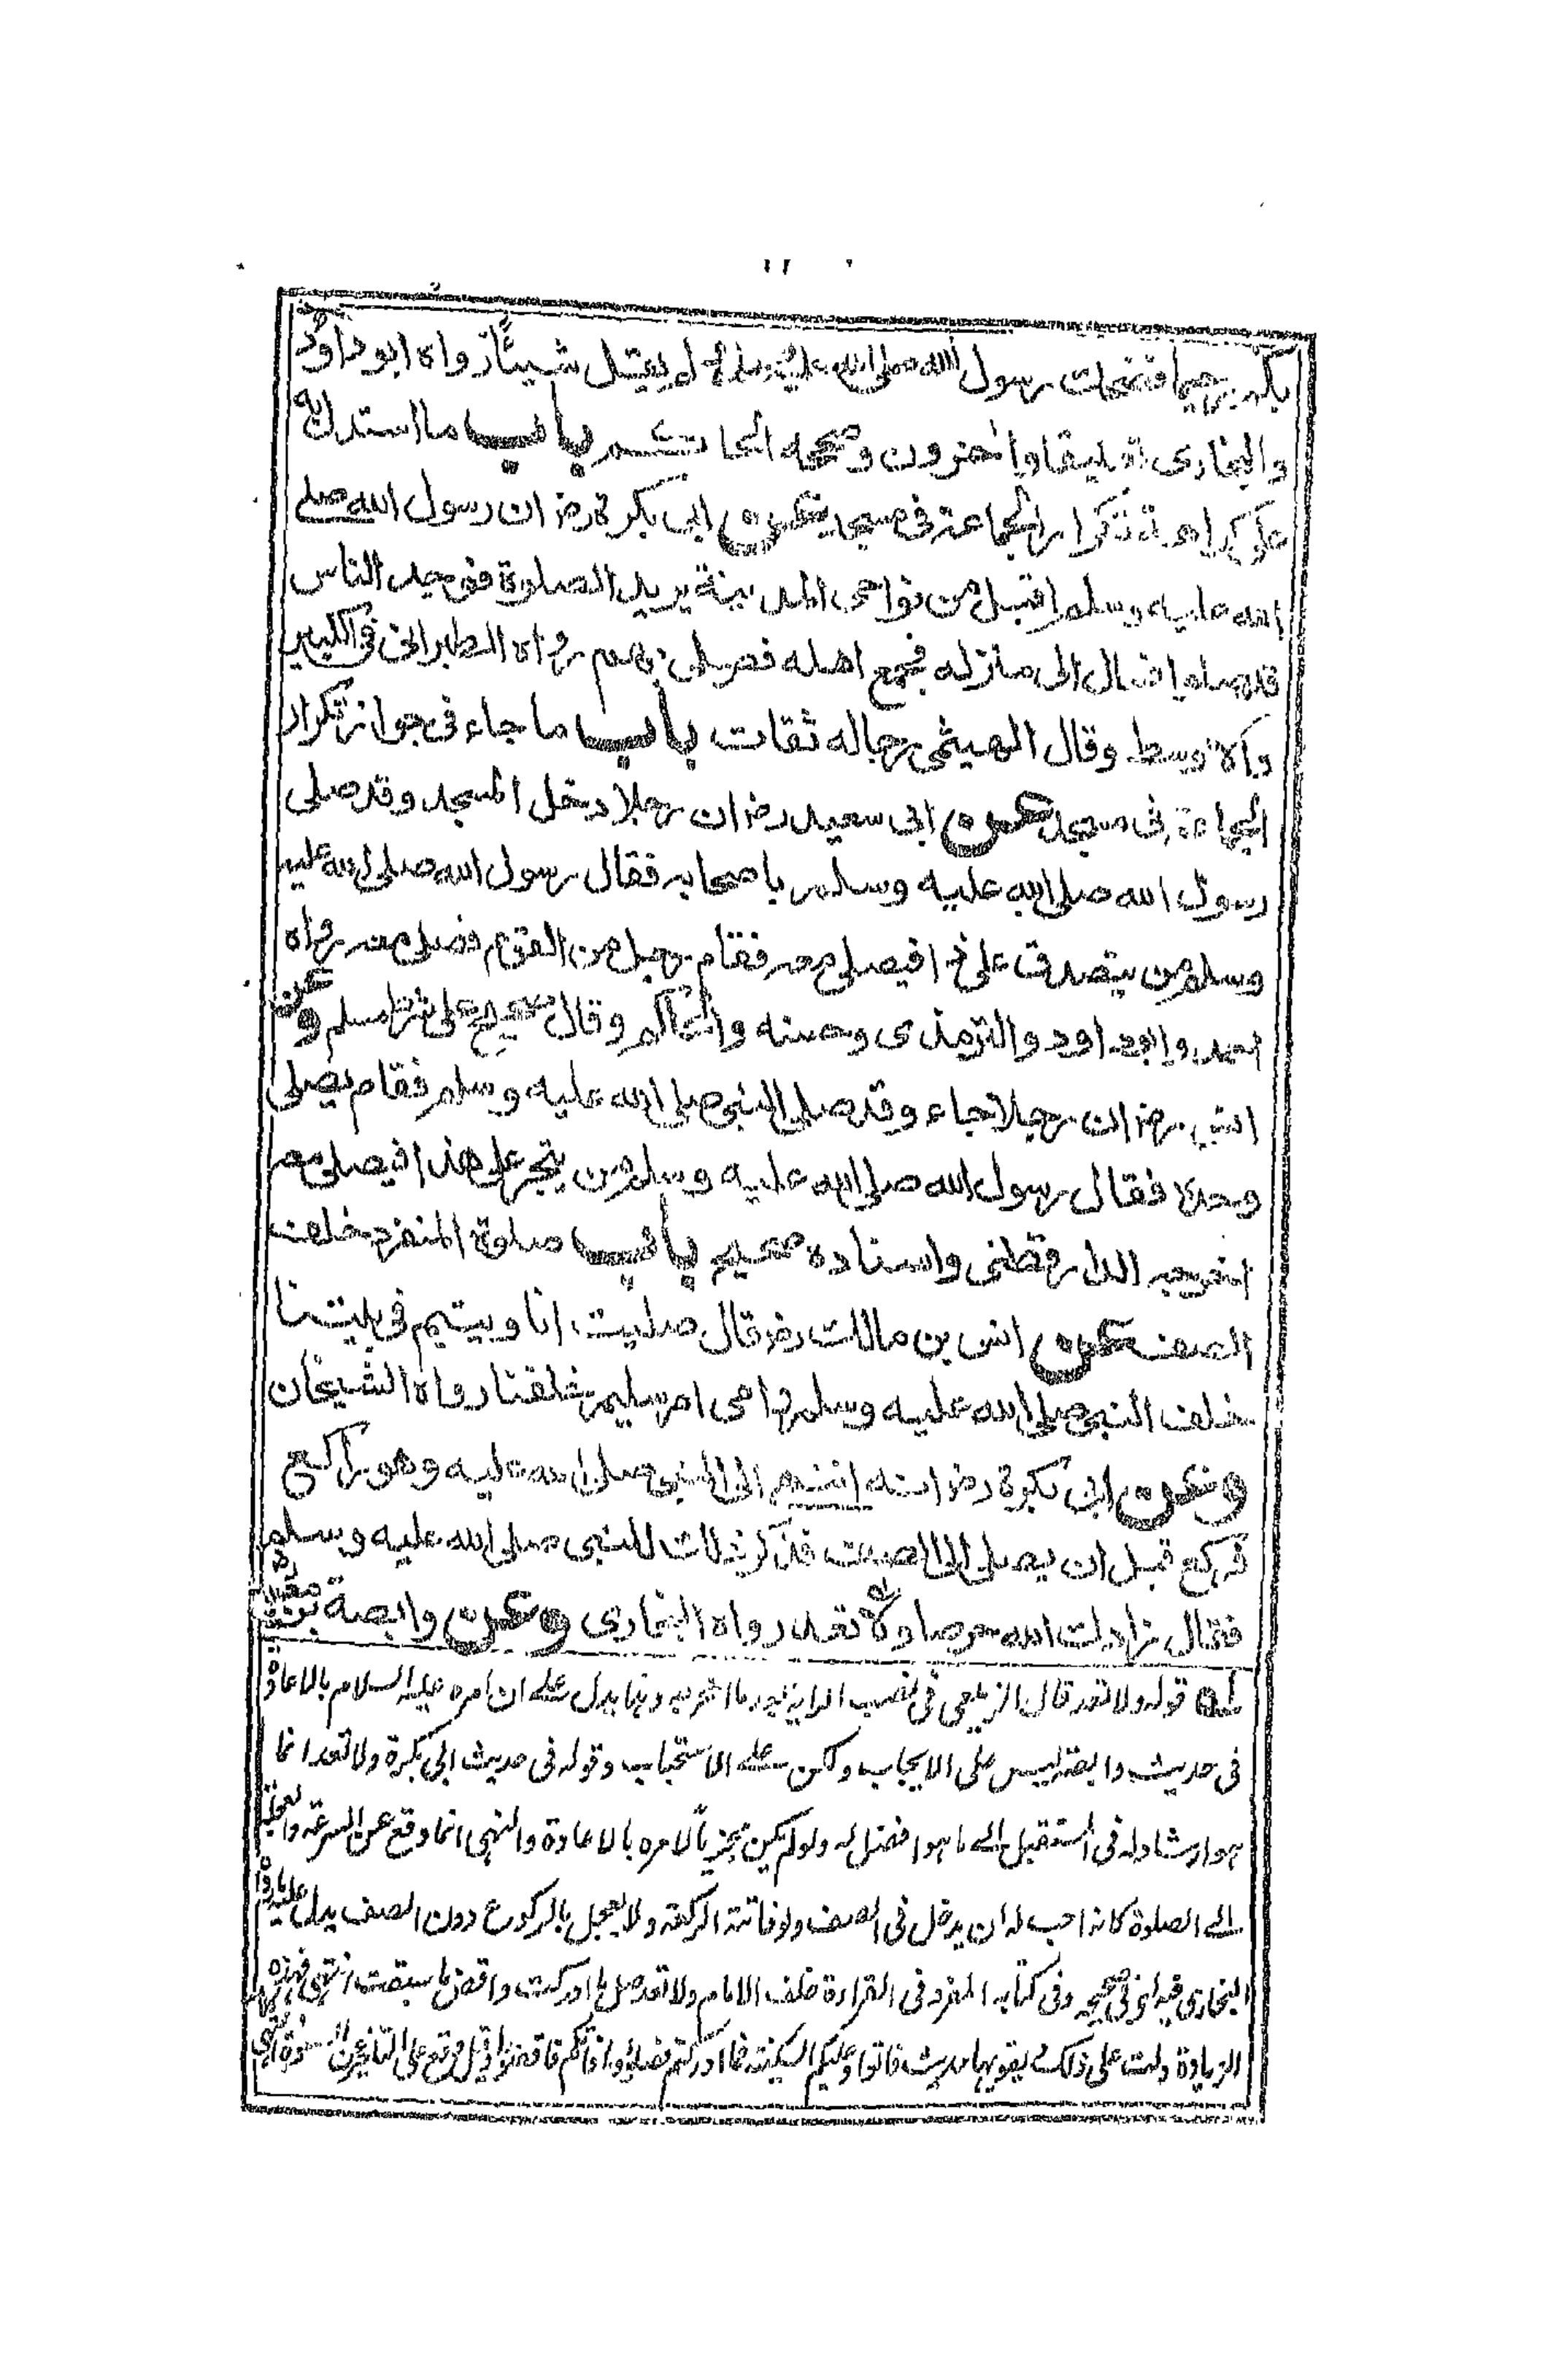 بكم رحيما فضحك رسول الله صلى الله عليه وسلم ولم يقل شيئًا رواه ابو داؤد
والبخارى تعليقا واخرون وصححه الحاكم باب ما استدل به
على كراهة تكرار الجماعة فى مسجد عن ابى بكرة رض ان رسول الله صلى
الله عليه وسلم اقبل من نواحى المدينة يريد الصلوة فوجد الناس
قد صلوا فمال الى منزله فجمع اهله فصلى بهم رواه الطبرانى فى الكبير
والاوسط وقال الهيثمى رجاله ثقات باب ما جاء فى جواز تكرار
الجماعة فى مسجد عن ابى سعيد رض ان رجلا دخل المسجد وقد صلى
رسول الله صلى الله عليه وسلم باصحابه فقال رسول الله صلى الله عليه
وسلم من يتصدق على ذا فيصلى معه فقام رجل من القوم فصلى معه رواه
احمد وابوداود والترمذى وحسنه والحاكم وقال صحيح على شرط مسلم وعن
انس رض ان رجلا جاء وقد صلى النبى صلى الله عليه وسلم فقام يصلى
وحده فقال رسول الله صلى الله عليه وسلم من يتجر على هذا فيصلى معه
اخرجه الدارقطنى واسناده صحيح باب صلوة المنفرد خلف
الصف عن انس بن مالك رض قال صليت انا ويتيم فى بيتنا
خلف النبى صلى الله عليه وسلم وامى ام سليم خلفنا رواه الشيخان
وعن ابى بكرة رض انه انتهى الى النبى صلى الله عليه وهو راكع
فركع قبل ان يصل الى الصف فذكر ذلك للنبى صلى الله عليه وسلم
فقال زادك الله حرصا ولا تعد رواه البخارى وعن وابصة بن
له قوله ولا تعد قال الزيلعى فى نصب الراية بعد ما اخرجه وهذا يدل على ان امره عليه السلام بالاعادة
فى حديث وابصة ليس على الايجاب ولكن على الاستحباب وقوله فى حديث ابى بكرة ولا تعد انما
هو ارشاد له فى المستقبل الى ما هو افضل له ولو لم يكن مجزيًا لامره بالاعادة والنهى انما وقع عن السرعة والعجلة
الى الصلوة كانه احب له ان يدخل فى الصف ولو فاتته الركعة ولا يعجل بالركوع دون الصف يدل عليه ما رواه
البخارى فى كتابه المفرد فى القراءة خلف الامام ولا تعد صل ما ادركت واقض ما سبقت انتهى فهذه
الزيادة دلت على ذلك ويقويها حديث فاتوا وعليكم السكينة فما ادركتم فصلوا وما فاتكم فاقضوا